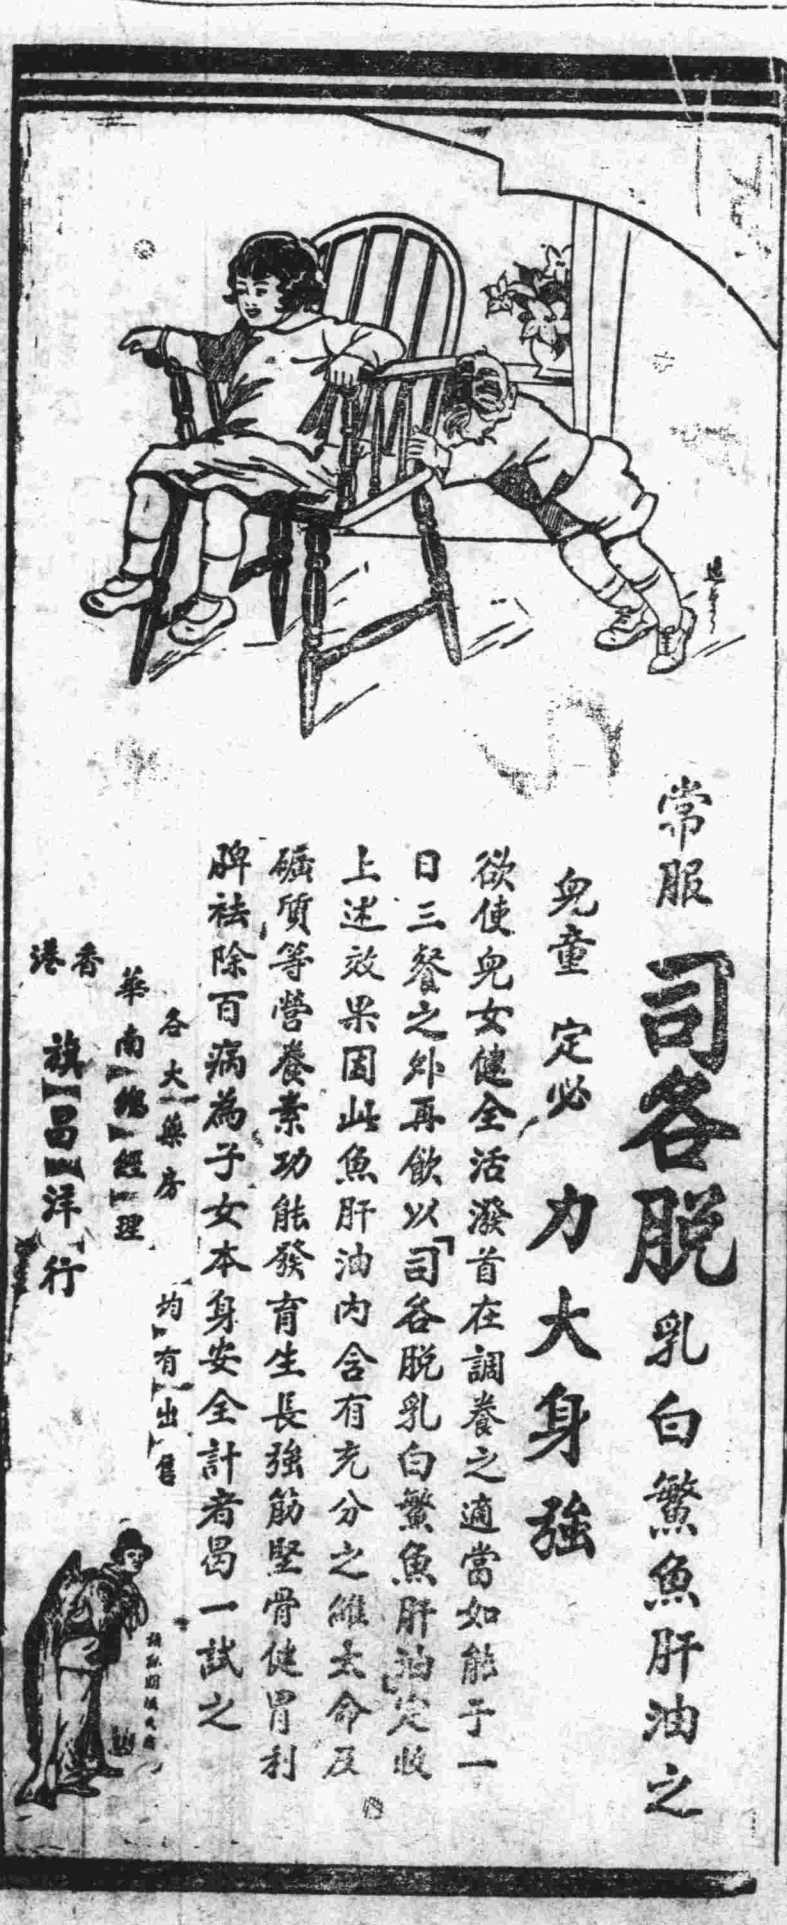 常服司各脫乳白鰵魚肝油之
兒童定必力大身強
欲使兒女健全活潑首在調養之適當如能于一
日三餐之外再飲以「司各脫乳白鰵魚肝油」定收
上述效果因此魚肝油內含有充分之維太命及
礦質等營養素功能發育生長強筋堅骨健胃利
脾祛除百病為子女本身安全計者曷一試之
各大藥房均有出售
華南總經理
香港
旗昌洋行